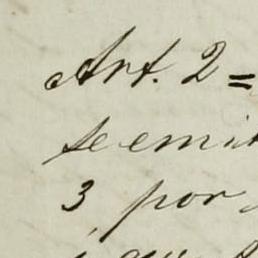 Art. 2=
se emit
3, por